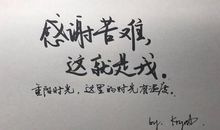 感谢苦难，
这就是我。
重阳时光，这里的时光有温度。
by.